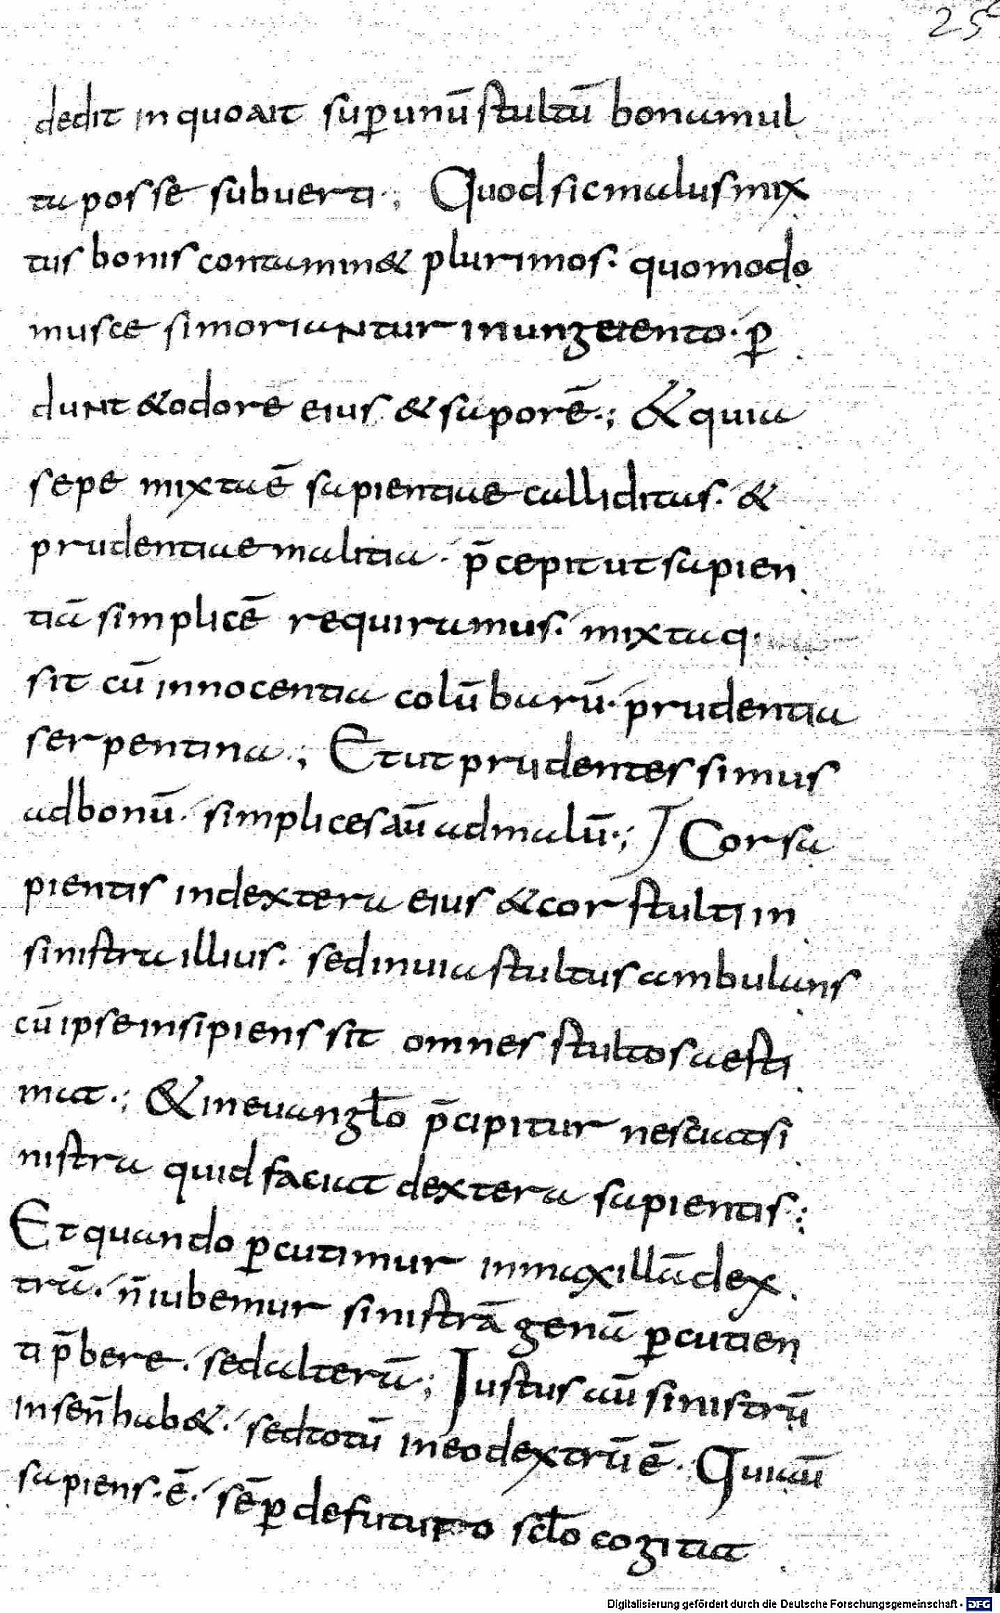 25
dedit in quo ait sup unū stultū bona mul
ta posse subuerti·; Quod sic malus mix
tus bonis contamin& plurimos· quomodo
musce si moriantur in ungeiento· p
dunt & odorē eius & saporē·; & quia
sepe mixta ē sapientiae calliditas· &
prudentiae malitia· p̄cepit ut sapien
tiā simplicē requiramus· mixtaq·
sit cū innocentia colūbarū· prudentia
serpentina·; Et ut prudentes simus
ad bonū· simplices aū ad malū·; Cor sa
pientis in dextera eius & cor stulti in
sinistra illius· sed in uia stultus ambulans
cū ipse insipiens sit omnes stultos aesti
mat·; & in euangl̄o p̄cipitur nesciat si
nistra quid faciat dextera sapientis;
Et quando pcutimur in maxillā dex
trā· n̄ iubemur sinistrā genā pcutien
ti p̄bere· sed alterā·; Iustus aū sinistrū
in se n̄ hab&· sed totū in eo dextrū ē· Qui aū
sapiens· ē· sēp de futuro scl̄o cogitat
Digitalisierung gefördert durch die Deutsche Forschungsgemeinschaft - DFG